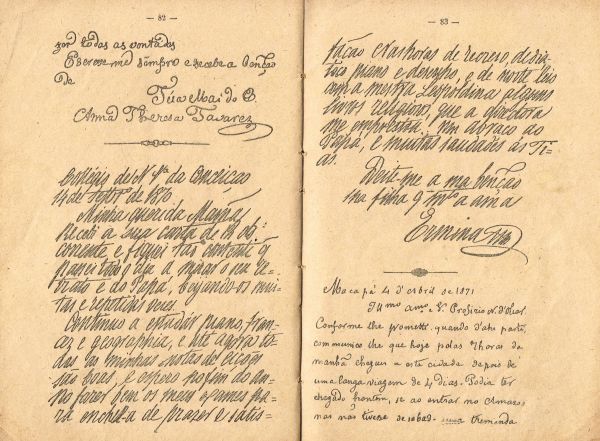 — 82 —
por todas as vontades
Escreve-me sempre e recebe a benção
de
Túa Mai do C.
Anna Theresa Tavarez
Collégio de N. Sra da Conceicao
14 de Setbro de 1870
Minha querida Mamãe
Recebi a sua carta de 18 do
corrente, e fiquei tão contente q
trato e do Papá, beijando-os mui-
tas e repetidas vezes.
Continuo a estudar piano, fran-
cez e geographia, e até agora to-
das as minhas notas de lições
são boas, e espero no fim do an-
no fazer bem os meus exames pa-
ra enchel-a de prazer e satis-
— 83 —
fação. Nas horas de recreio, dedi-
co piano e desenho, e de noite leio
com a mestra Leopoldina alguns
livros religiosos, que a directora
me emprestou. Um abraco ao
Papá, e muitas saudades às Ti-
as.
Deite-me a sua benção
sua filha q mto a ama
Ermina
Macapá 4 d'Abril de 1871
Illmo amo e Sr. Profirio N. d'Oliar
Conforme lhe prometti, quando d'ahi parti,
communico lhe que hoje pelas 7 horas da
manhã cheguei a esta cidade depois de
uma longa viagem de 4 dias. Podia ter
chegado hontem, se ao entrar no Amazo-
nas não tivesse desabado uma tremenda